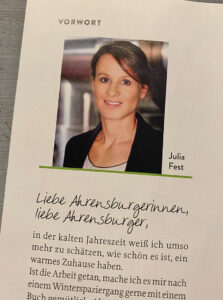 VORWORT
Julia
Fest
Liebe Ahrensburgerinnen,
liebe Ahrensburger,
in der kalten Jahreszeit weiß ich umso
mehr zu schätzen, wie schön es ist, ein
warmes Zuhause haben.
Ist die Arbeit getan, mache ich es mir nach
einem Winterspaziergang gerne mit einem
Buch gemütlich